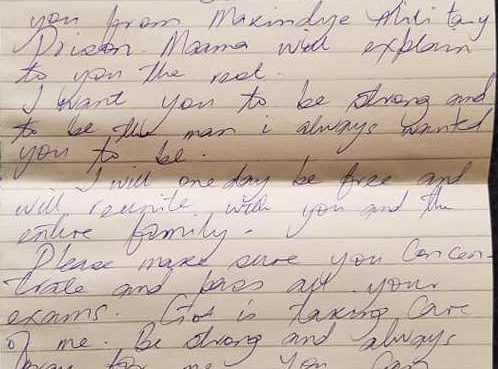 you from Makindye Military
Prison. Maama will explain
to you the rest.
I want you to be strong and
to be the man i always wanted
you to be.
I will one day be free and
will reunite with you and the
entire family.
Please make sure you concen-
trate and pass all your
exams. God is taking care
of me. Be strong and always
pray for me. You can